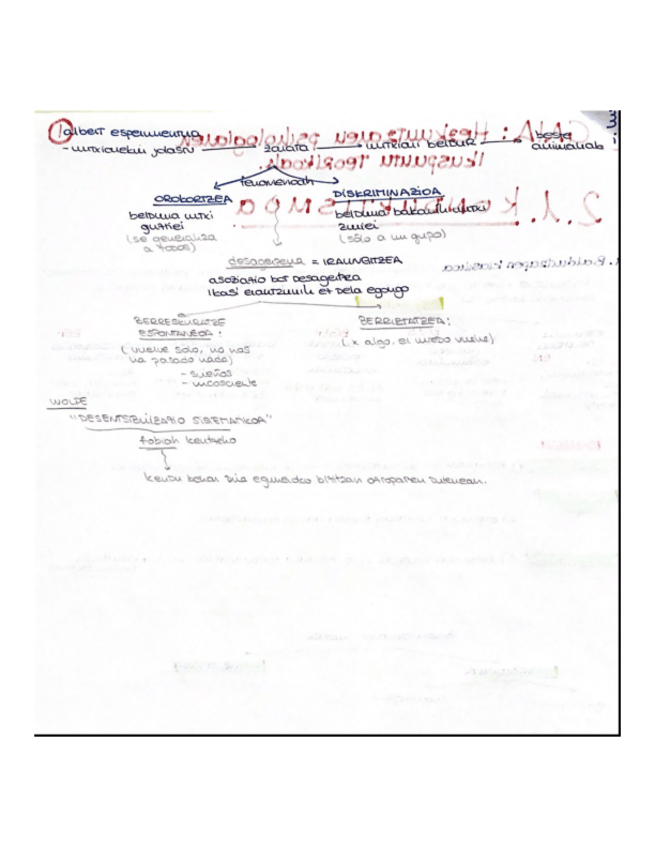 ① albert esperimentua
- untxiarekin jolastu → zarata → untxiari beldur → beste animaliak
fenomenoak
OROKORTZEA
DISKRIMINAZIOA
beldurra untxi guztiei
beldurra bakarrik untxi zuriei
(se generaliza a todos)
(sólo a un grupo)
desagerpena = IRAUNGITZEA
asoziazio bat desagertzea
Ikasi erantzunik ez dela egongo
BERRESKURATZE ESPONTANEOA:
BERRIZTATZEA:
(vuelve solo, no nos ha pasado nada)
(x algo, el miedo vuelve)
- sueños
- incosciente
WOLPE
"DESENTSIBILIZAZIO SISTEMATIKOA"
fobiak kentzeko
kendu behar dira eguneroko bizitzan oztopatzen dutenean.